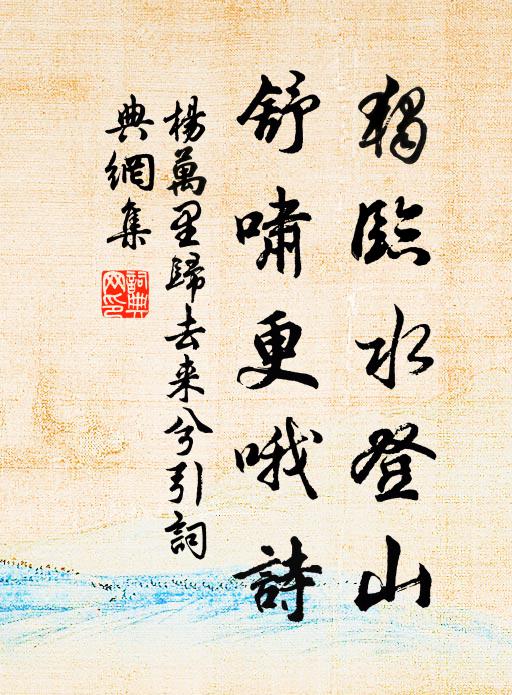 獨臨水登山
舒嘯更哦詩
楊萬里歸去来兮引詞
典網集
詞典
网印